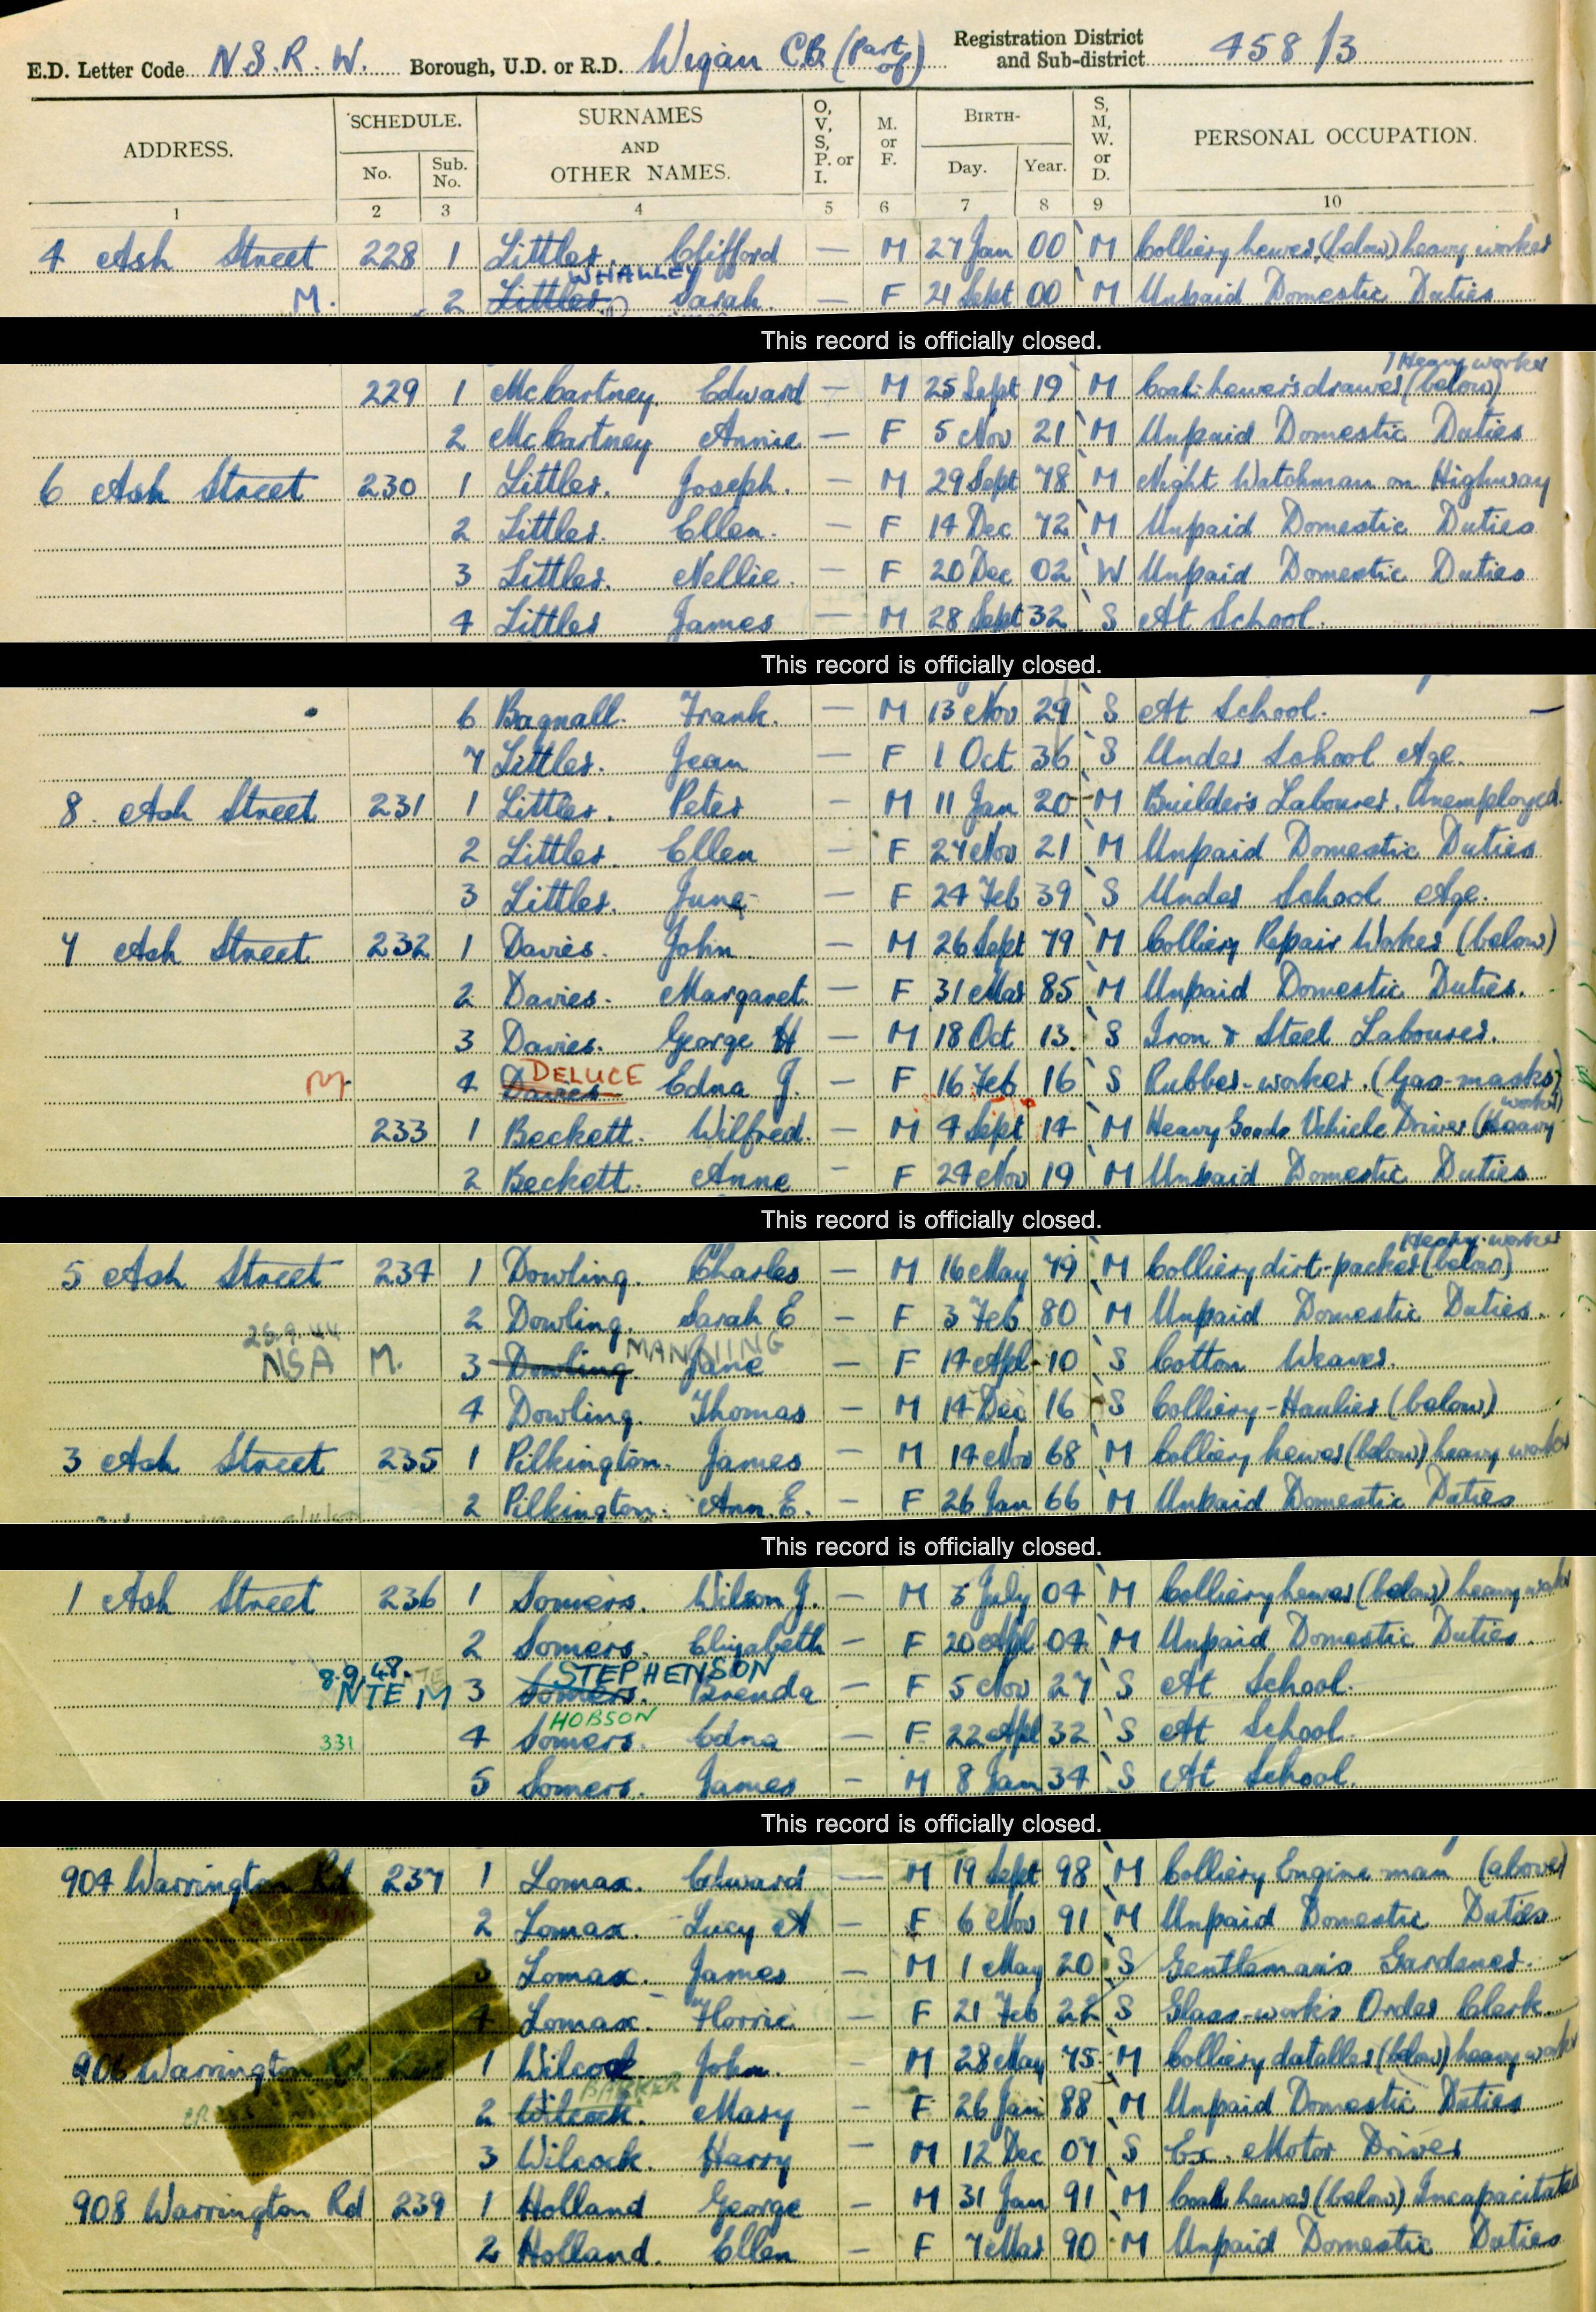 E.D. Letter Code N.S.R.W. Borough, U.D. or R.D. Wigan C.B. (Part of) Registration District and Sub-district 458/3
ADDRESS. SCHEDULE. No. Sub. No. SURNAMES AND OTHER NAMES. O, V, S, P. or I. M. or F. BIRTH- Day. Year. S, M, W. or D. PERSONAL OCCUPATION.
1 2 3 4 5 6 7 8 9 10
4 Ash Street 228 1 Littler. Clifford — M 27 Jan 00 M Colliery hewer (below) heavy worker
WHALLEY
M. 2 Littler. Sarah. — F 21 Sept 00 M Unpaid Domestic Duties
This record is officially closed.
Heavy worker
229 1 McCartney. Edward — M 25 Sept 19 M Coal-hewer's drawer (below)
2 McCartney Annie — F 5 Nov 21 M Unpaid Domestic Duties
6 Ash Street 230 1 Littler. Joseph. — M 29 Sept 78 M Night Watchman on Highway
2 Littler. Ellen. — F 14 Dec 72 M Unpaid Domestic Duties
3 Littler. Nellie. — F 20 Dec 02 W Unpaid Domestic Duties
4 Littler James — M 28 Sept 32 S At School.
This record is officially closed.
6 Bagnall. Frank. — M 13 Nov 29 S At School. —
7 Littler. Jean — F 1 Oct 36 S Under School Age.
8. Ash Street 231 1 Littler. Peter — M 11 Jan 20 M Builder's Labourer. Unemployed.
2 Littler. Ellen — F 27 Nov 21 M Unpaid Domestic Duties
3 Littler. June — F 24 Feb 39 S Under School Age.
7 Ash Street 232 1 Davies. John — M 26 Sept 79 M Colliery Repair Woker (below)
2 Davies. Margaret — F 31 Mar 85 M Unpaid Domestic Duties.
3 Davies. George H — M 18 Oct 13. S Iron & Steel Labourer.
DELUCE
M. 4 Davies Edna J. — F 16 Feb 16 S Rubber-worker. (Gas-masks)
233 1 Beckett. Wilfred. — M 4 Sept 14 M Heavy Goods Vehicle Driver (Heavy worker)
2 Beckett. Anne — F 24 Nov 19 M Unpaid Domestic Duties
This record is officially closed.
Heavy-worker
5 Ash Street 234 1 Dowling. Charles — M 16 May 79 M Colliery dirt-packer (below)
2 Dowling. Sarah E — F 3 Feb 80 M Unpaid Domestic Duties.
26.9.44 MANDIING
NSA M. 3 Dowling. Jane — F 14 Apl 10 S Cotton Weaver.
4 Dowling. Thomas — M 14 Dec 16 S Colliery-Haulier (below)
3 Ash Street 235 1 Pilkington. James — M 14 Nov 68 M Colliery hewer (below) heavy worker
2 Pilkington. Ann. E. — F 26 Jan 66 M Unpaid Domestic Duties
This record is officially closed.
1 Ash Street 236 1 Somers. Wilson J. — M 3 July 04 M Colliery hewer (below) heavy worker
2 Somers. Elizabeth — F 20 Apl 04 M Unpaid Domestic Duties.
8.9.48. STEPHENSON
NTE M 3 Somers. Brenda — F 5 Nov 27 S At School.
HOBSON
331 4 Somers. Edna — F 22 Apl 32 S At School.
5 Somers. James — M 8 Jan 34 S At School.
This record is officially closed.
904 Warrington Rd 237 1 Lomax. Edward — M 19 Sept 98 M Colliery Engine man (above)
2 Lomax. Lucy A — F 6 Nov 91 M Unpaid Domestic Duties
3 Lomax. James — M 1 May 20 S Gentleman's Gardener.
4 Lomax. Florrie — F 21 Feb 22 S Glass-works Order Clerk.
906 Warrington Rd 1 Wilcock John. — M 28 May 75 M Colliery dataller (below) heavy worker
BARKER
2 Wilcock. Mary — F 26 Jan 88 M Unpaid Domestic Duties
3 Wilcock. Harry — M 12 Dec 07 S Ex. Motor Driver
908 Warrington Rd 239 1 Holland George — M 31 Jan 91 M Coal hewer (below) Incapacitated
2 Holland. Ellen — F 7 Mar 90 M Unpaid Domestic Duties